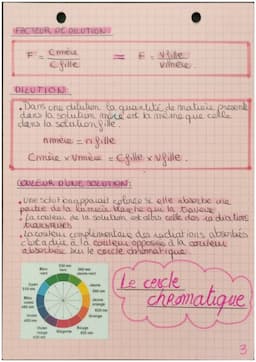 FACTEUR DE DILUTION:
F = Cmère / Cfille = F = Vfille / Vmère
DILUTION:
• Dans une dilution la quantité de matière présente
dans la solution mère est la même que celle
dans la solution fille.
nmère = nfille
Cmère × Vmère = Cfille × Vfille.
COULEUR D'UNE SOLUTION:
• une solution apparait colorée si elle absorbe une
partie de la lumière blanche qui la traverse
• La couleur de la solution est alors celle des radiations
transmises
• La couleur complémentaire des radiations absorbées
c'est à dire à la couleur opposée à la couleur
absorbée sur le cercle chromatique
Le cercle
chromatique
Bleu
Vert
Jaune
Orange
Rouge
Magenta
Violet
3